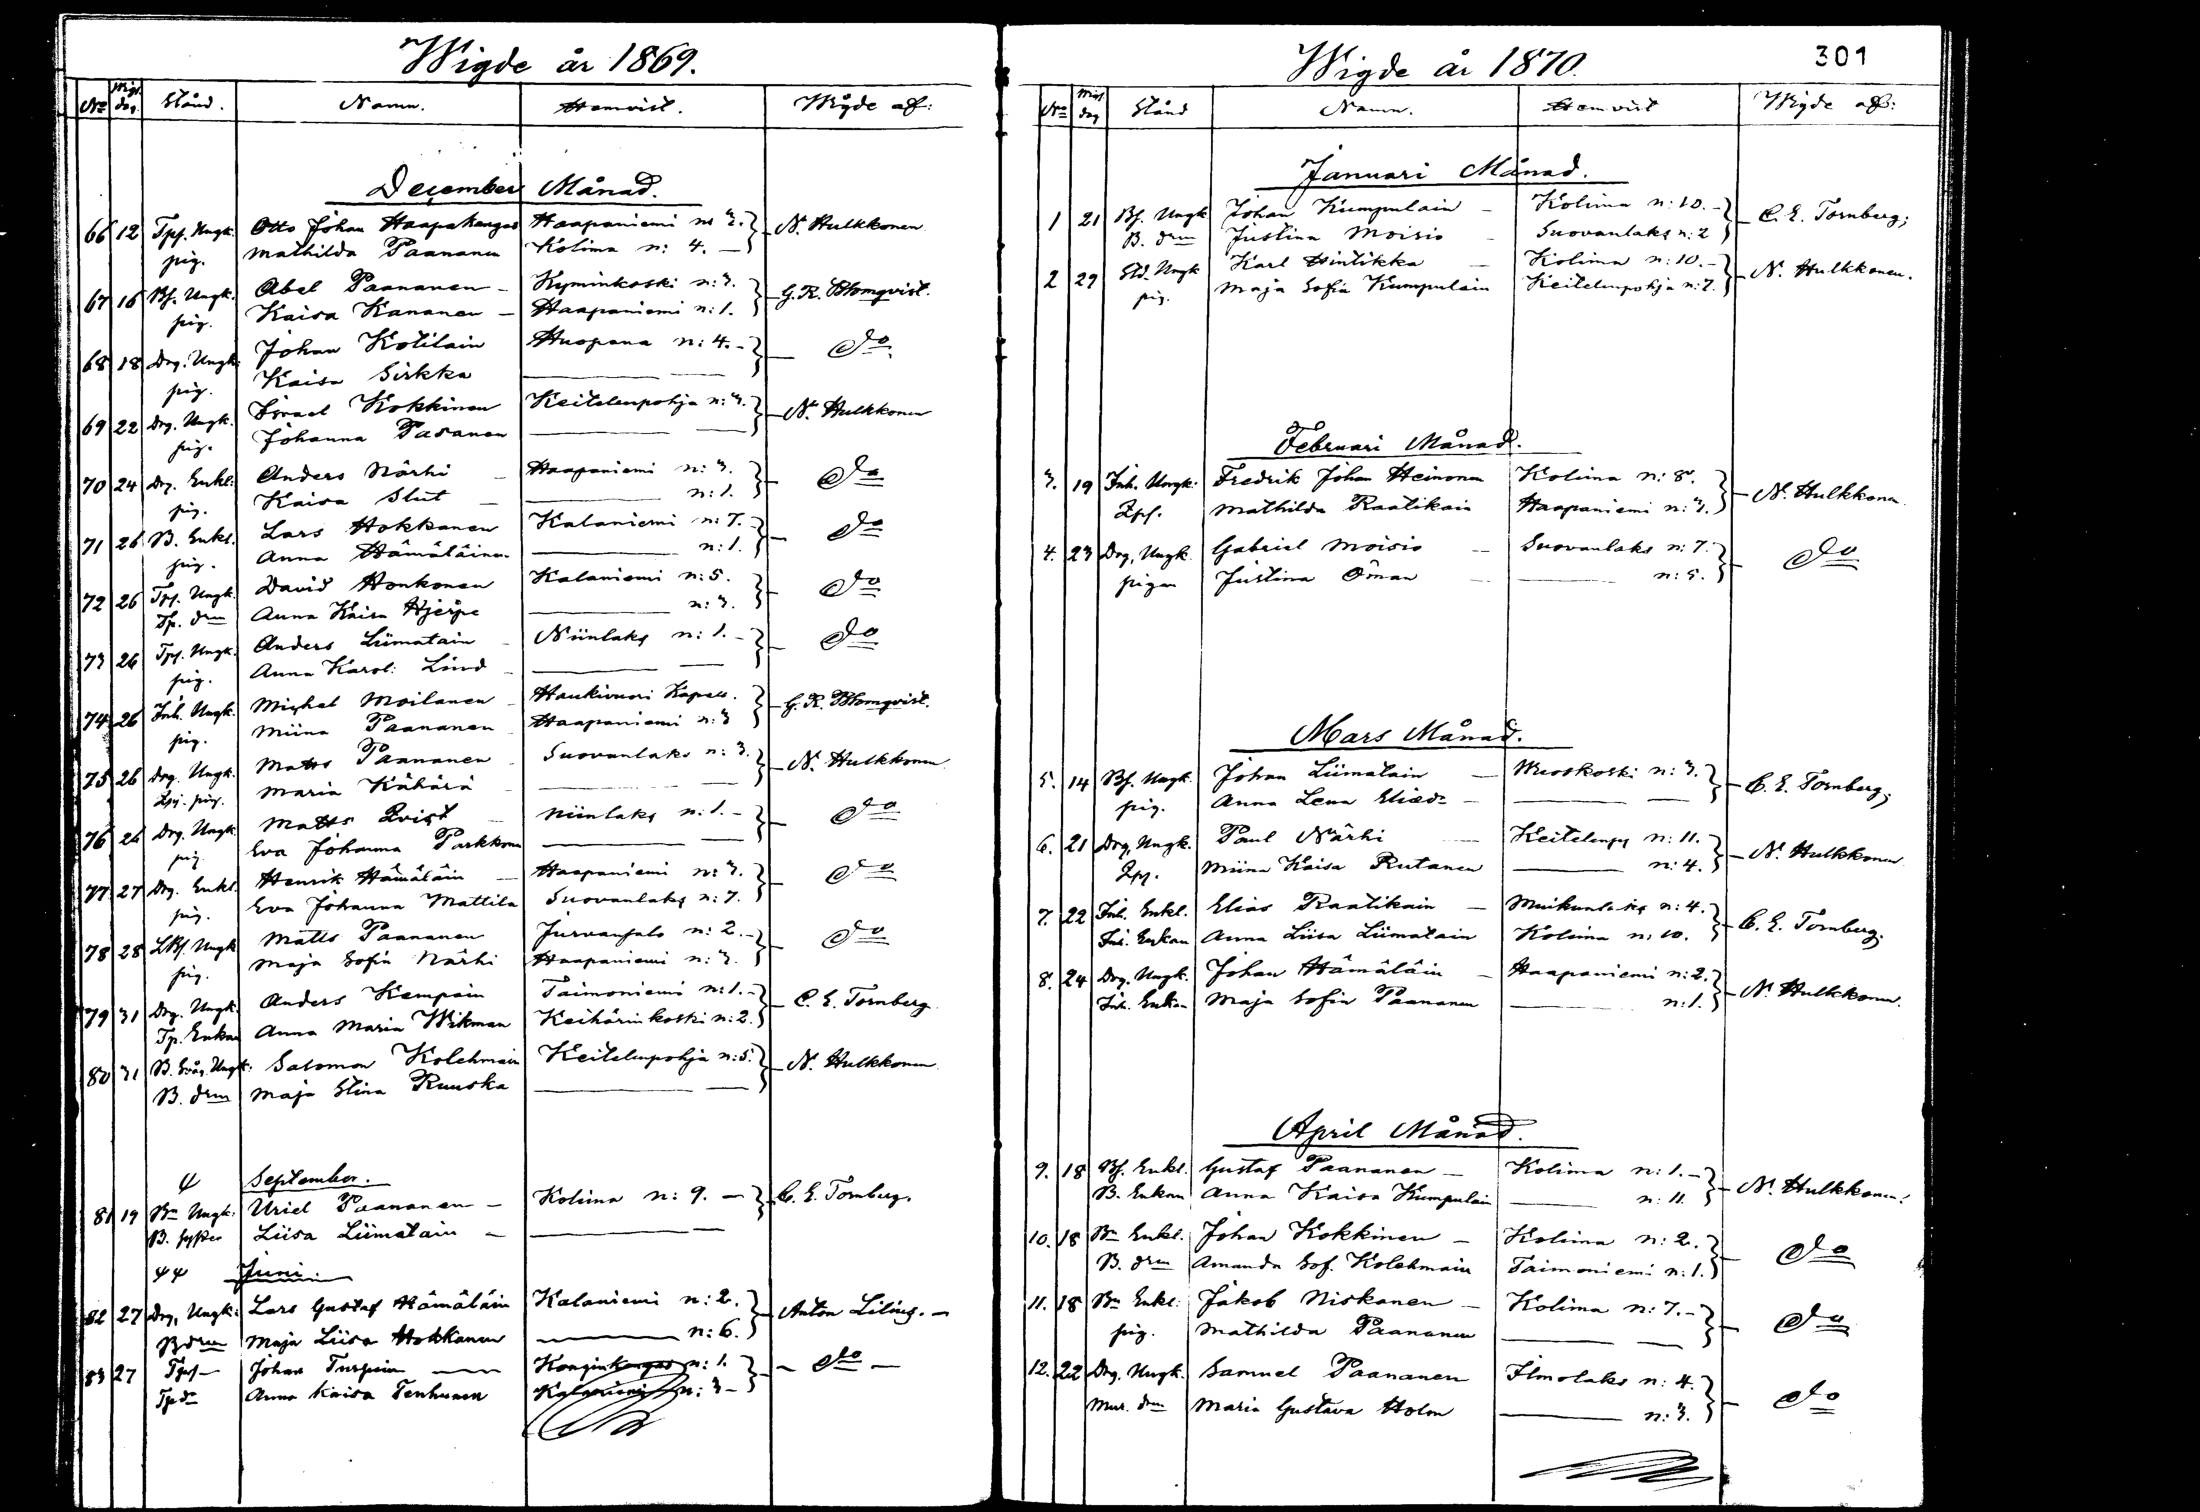 Wigde år 1869.
No Wigs. dag. Stånd. Namn. Hemvist. Wigde af:
December Månad.
66 12 Tpf. Ungk. Otto Johan Haapakangas Haapaniemi n: 3. N. Hulkkonen
pig. Mathilda Paananen Kolima n: 4. —
67 16 Bf. Ungk. Abel Paananen – Kyminkoski n: 3. G. R. Blomqvist.
pig. Kaisa Kananen – Haapaniemi n: 1.
68 18 Drg. Ungk. Johan Kotilain Huopana n: 4. – do
pig. Kaisa Sirkka ——
69 22 Drg. Ungk. Israel Kokkinen Keitelenpohja n: 3. N. Hulkkonen
pig. Johanna Pasanen ——
70 24 Drg. Enkl: Anders Närhi – Haapaniemi n: 3. do
pig. Kaisa Slut – —— n: 1.
71 26 B. Enkl. Lars Hokkanen Kalaniemi n: 7. do
pig. Anna Hämäläinen —— n: 1.
72 26 Tpf. Ungk. David Honkonen Kalaniemi n: 5. do
Tp. drn Anna Kaisa Hjerpe —— n: 3.
73 26 Tpf. Ungk. Anders Liimatain – Niinlaks n: 1. – do
pig. Anna Karol: Lind ——
74 26 Inh. Ungk. Michel Moilanen Haukivuori Kapell. G. R. Blomqvist.
pig. Miina Paananen Haapaniemi n: 3
75 26 Drg. Ungk. Matts Paananen Suovanlaks n: 3. N. Hulkkonen
pig. Maria Kähärä ——
76 26 Drg. Ungk. Matts Qvist Niinlaks n: 1. – do
pig. Eva Johanna Parkkonen ——
77 27 Drg. Enkl. Henrik Hämäläin – Haapaniemi n: 3. do
pig. Eva Johanna Mattila Suovanlaks n: 7.
78 28 LBf. Ungk Matts Paananen Jurvansalo n: 2. – do
pig. Maja Sofia Närhi Haapaniemi n: 3.
79 31 Drg. Ungk. Anders Kempain Taimoniemi n: 1. – C. E. Tornberg
Tp. Enkan Anna Maria Wikman Keihärinkoski n: 2.
80 31 B. Ungk: Salomon Kolehmain Keitelenpohja n: 5. N. Hulkkonen
B. drn Maja Stina Ruuska ——
September.
81 19 Bn Ungk. Uriel Paananen – Kolima n: 9. — C. E. Tornberg.
B. syster Liisa Liimatain – ——
Juni.
82 27 Drg. Ungk: Lars Gustaf Hämäläin Kalaniemi n: 2. Anton Lilius. –
B drn Maja Liisa Hokkanen —— n: 6.
83 27 Tpf – Johan Turpein —— Konginkangas n: 1. – do –
Tp dr Anna Kaisa Tenhunen Kalaniemi n: 3 –
Wigde år 1870.
301
No Wigs. dag Stånd Namn. Hemvist Wigde af:
Januari Månad.
1 21 Bf. Ungk Johan Kumpulain – Kolima n: 10. – C. E. Tornberg;
B. drn Justina Moisio – Suovanlaks n: 2
2 29 Std. Ungk Karl Hintikka – Kolima n: 10. – N. Hulkkonen.
pig. Maja Sofia Kumpulain Keitelenpohja n: 7.
Februari Månad.
3. 19 Inh. Ungk: Fredrik Johan Heinonen Kolima n: 8. N. Hulkkonen
Mathilda Raatikain Haapaniemi n: 3.
4. 23 Drg. Ungk. Gabriel Moisio – Suovanlaks n: 7. do
pigan Justina Öman —— n: 5.
Mars Månad.
5. 14 Bf. Ungk. Johan Liimatain – Wuoskoski n: 3. C. E. Tornberg;
pig. Anna Lena ——
6. 21 Drg. Ungk. Paul Närhi —— Keitelenp. n: 11. N. Hulkkonen
Miina Kaisa Rutanen —— n: 4.
7. 22 Inh. Enkl. Elias Raatikain – Muikunlaks n: 4. C. E. Tornberg.
Inh. Enkan Anna Liisa Liimatain Kolima n: 10.
8. 24 Drg. Ungk. Johan Hämäläin – Haapaniemi n: 2. N. Hulkkonen.
Inh. Enkan Maja Sofia Paananen —— n: 1.
April Månad.
9. 18 Bf. Enkl. Gustaf Paananen – Kolima n: 1. – N. Hulkkonen.
B. Enkan Anna Kaisa Kumpulain —— n: 11.
10. 18 Bn Enkl. Johan Kokkinen – Kolima n: 2. do
B. drn Amanda Sof. Kolehmain Taimoniemi n: 1.
11. 18 Bn Enkl: Jakob Niskanen – Kolima n: 7. – do
pig. Mathilda Paananen ——
12. 22 Drg. Ungk. Samuel Paananen Ilmolaks n: 4. do
Mur. drn Maria Gustava Holm —— n: 3.